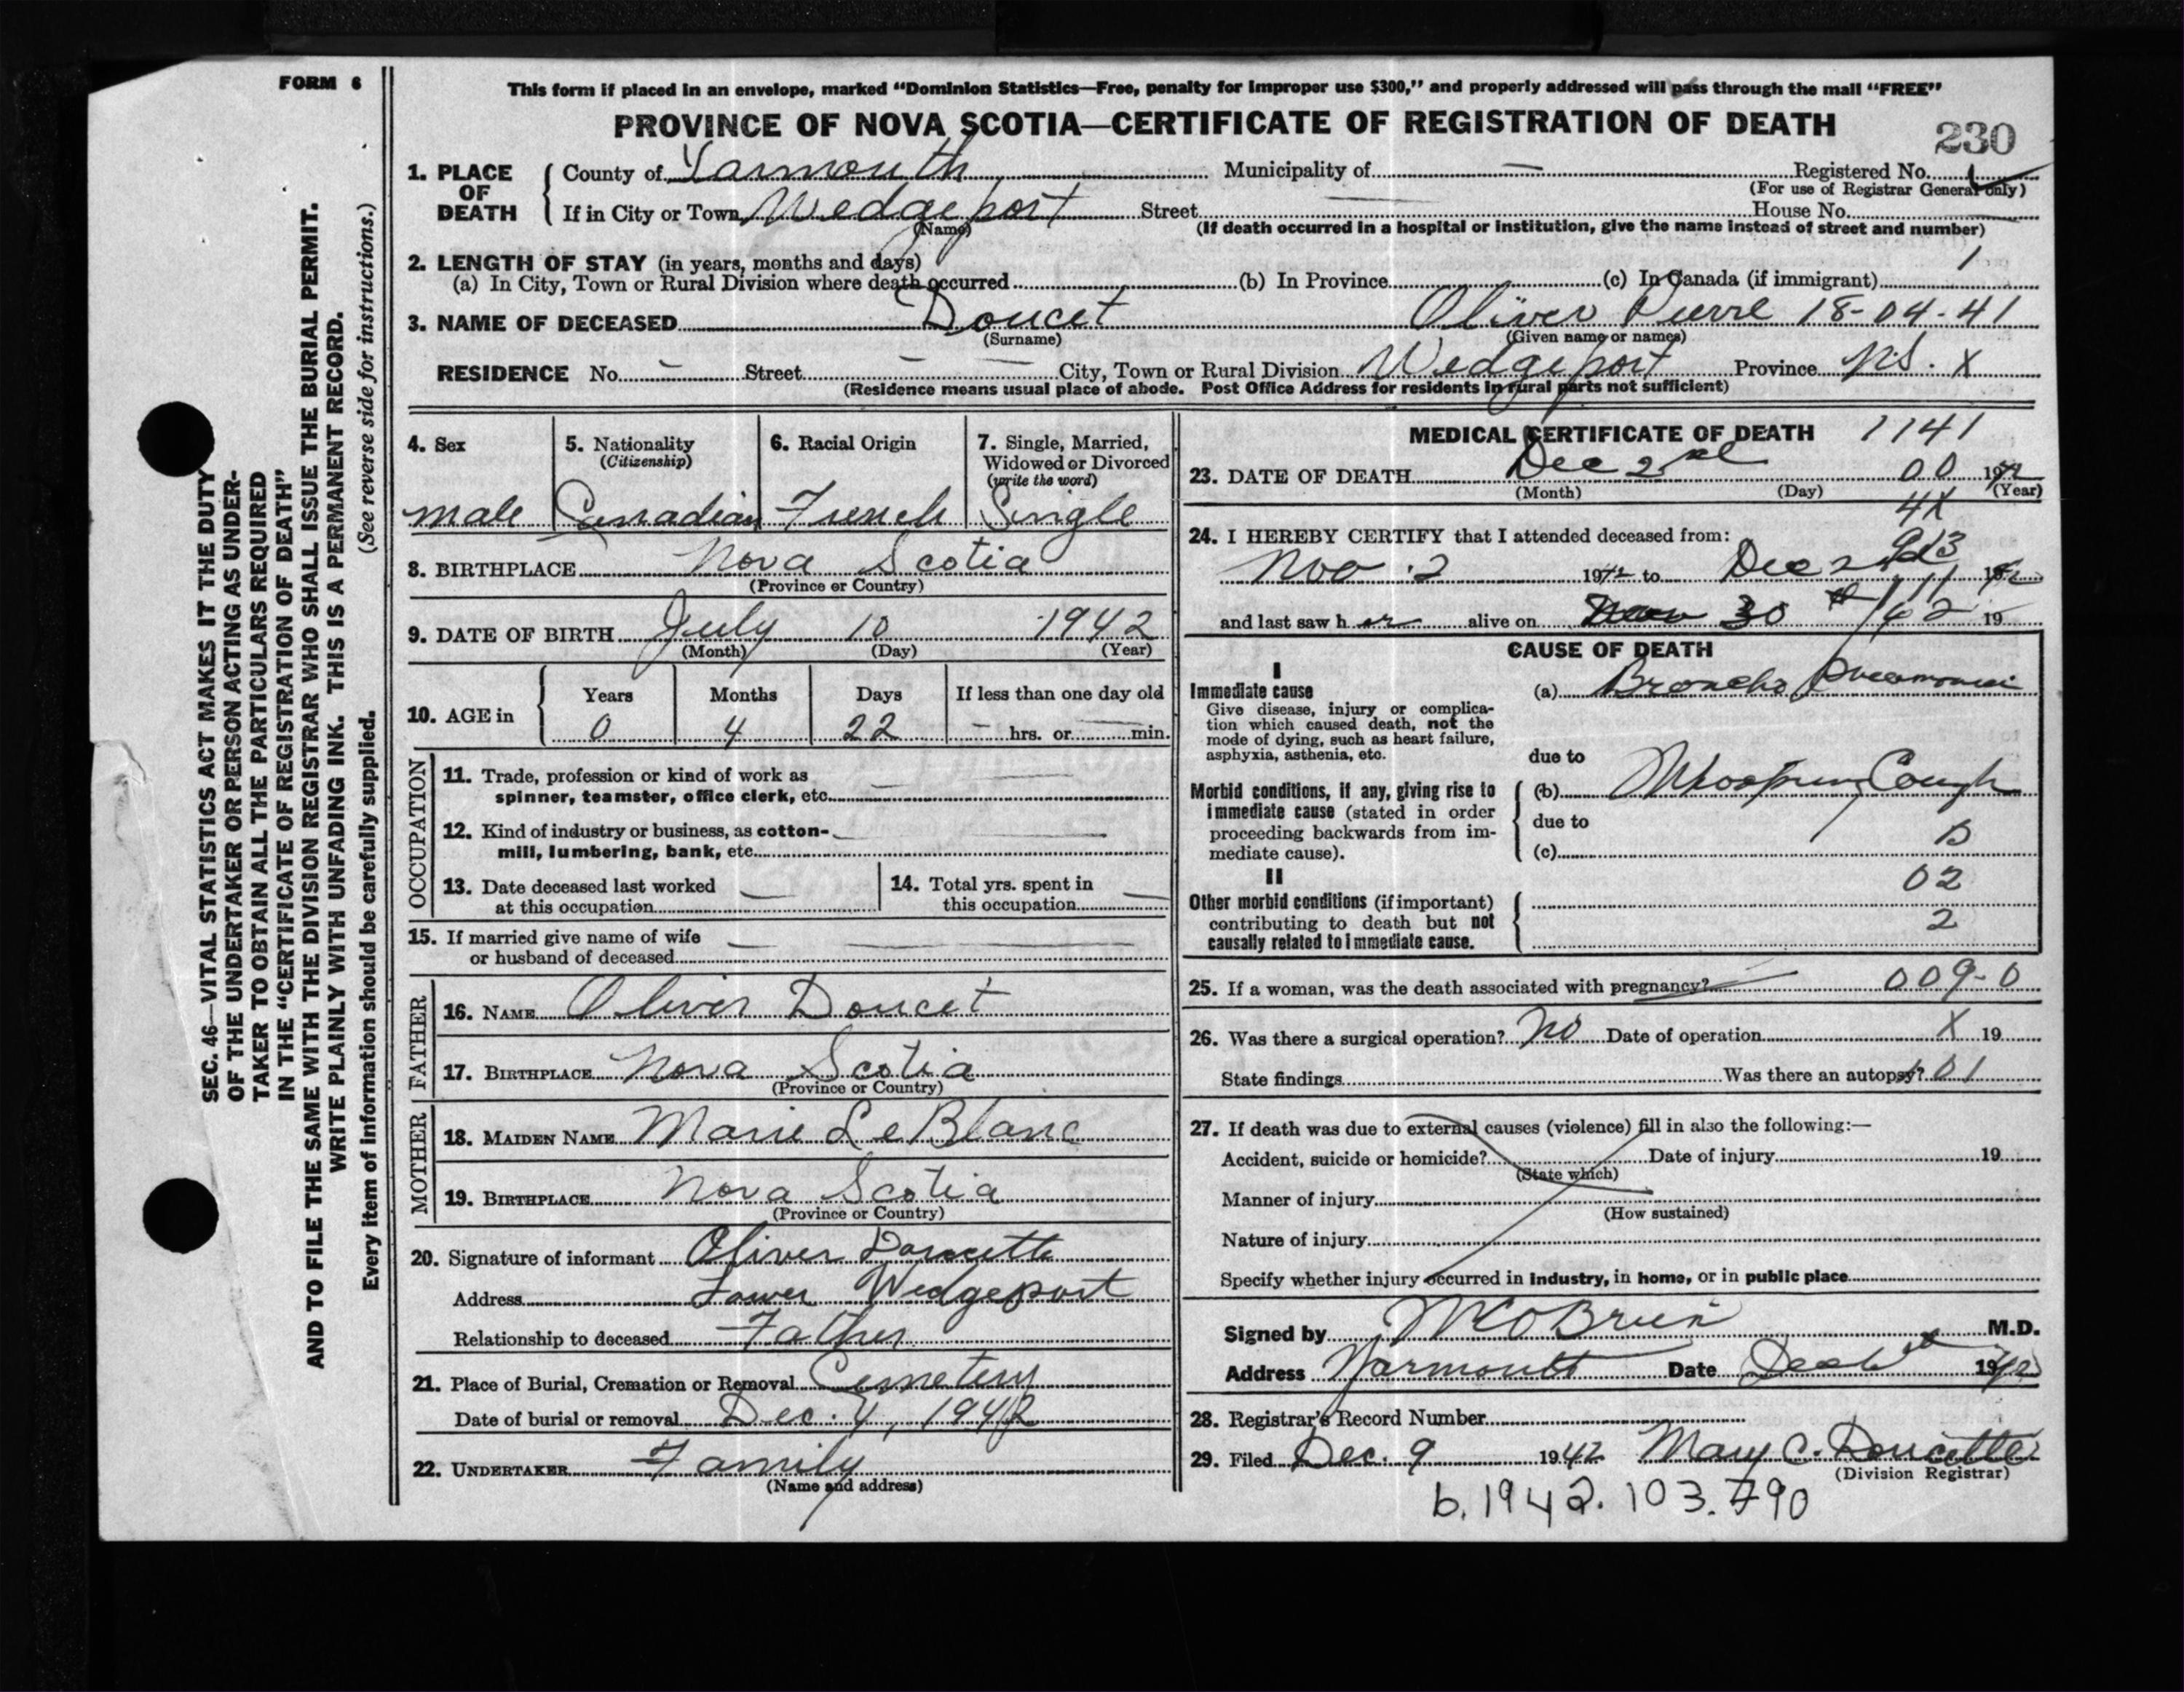 FORM 6
This form if placed in an envelope, marked “Dominion Statistics—Free, penalty for improper use $300,” and properly addressed will pass through the mail “FREE”
PROVINCE OF NOVA SCOTIA—CERTIFICATE OF REGISTRATION OF DEATH
230
1. PLACE OF DEATH { County of Yarmouth Municipality of — Registered No. 1
(For use of Registrar General only)
If in City or Town Wedgeport Street House No.
(Name) (If death occurred in a hospital or institution, give the name instead of street and number)
2. LENGTH OF STAY (in years, months and days) 1
(a) In City, Town or Rural Division where death occurred (b) In Province (c) In Canada (if immigrant)
3. NAME OF DECEASED Doucet Oliver Pierre 18-04-41
(Surname) (Given name or names)
RESIDENCE No. — Street — City, Town or Rural Division Wedgeport Province N.S. X
(Residence means usual place of abode. Post Office Address for residents in rural parts not sufficient)
4. Sex
male
5. Nationality
(Citizenship)
Canadian
6. Racial Origin
French
7. Single, Married,
Widowed or Divorced
(write the word)
Single
8. BIRTHPLACE Nova Scotia
(Province or Country)
9. DATE OF BIRTH July 10 1942
(Month) (Day) (Year)
10. AGE in { Years Months Days If less than one day old
0 4 22 — hrs. or min.
OCCUPATION
11. Trade, profession or kind of work as
spinner, teamster, office clerk, etc. —
12. Kind of industry or business, as cotton-
mill, lumbering, bank, etc. —
13. Date deceased last worked
at this occupation —
14. Total yrs. spent in
this occupation —
15. If married give name of wife
or husband of deceased —
FATHER
16. NAME Oliver Doucet
17. BIRTHPLACE Nova Scotia
(Province or Country)
MOTHER
18. MAIDEN NAME Marie LeBlanc
19. BIRTHPLACE Nova Scotia
(Province or Country)
20. Signature of informant Oliver Doucette
Address Lower Wedgeport
Relationship to deceased Father
21. Place of Burial, Cremation or Removal Cemetery
Date of burial or removal Dec. 4, 1942
22. UNDERTAKER Family
(Name and address)
MEDICAL CERTIFICATE OF DEATH 1141
23. DATE OF DEATH Dec 2nd 00 1942
(Month) (Day) (Year)
4X
24. I HEREBY CERTIFY that I attended deceased from:
Nov. 2 1942 to Dec 2nd 1942
and last saw h er alive on 30th 19
CAUSE OF DEATH
I
Immediate cause
Give disease, injury or complica-
tion which caused death, not the
mode of dying, such as heart failure,
asphyxia, asthenia, etc.
(a) Broncho Pneumonia
due to
Morbid conditions, if any, giving rise to
immediate cause (stated in order
proceeding backwards from im-
mediate cause).
(b) Whooping Cough
due to
(c)
02
II
Other morbid conditions (if important)
contributing to death but not
causally related to immediate cause.
2
25. If a woman, was the death associated with pregnancy? 009-0
26. Was there a surgical operation? No Date of operation X 19
State findings Was there an autopsy? 01
27. If death was due to external causes (violence) fill in also the following:—
Accident, suicide or homicide? Date of injury 19
(State which)
Manner of injury
(How sustained)
Nature of injury
Specify whether injury occurred in industry, in home, or in public place
Signed by O'Brien M.D.
Address Yarmouth Date Dec 1942
28. Registrar's Record Number
29. Filed Dec. 9 1942 Mary C. Doucette
(Division Registrar)
b.1942.103.790
SEC. 46—VITAL STATISTICS ACT MAKES IT THE DUTY
OF THE UNDERTAKER OR PERSON ACTING AS UNDER-
TAKER TO OBTAIN ALL THE PARTICULARS REQUIRED
IN THE “CERTIFICATE OF REGISTRATION OF DEATH”
AND TO FILE THE SAME WITH THE DIVISION REGISTRAR WHO SHALL ISSUE THE BURIAL PERMIT.
WRITE PLAINLY WITH UNFADING INK. THIS IS A PERMANENT RECORD.
(See reverse side for instructions.)
Every item of information should be carefully supplied.